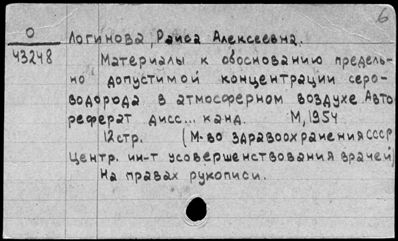 6
О
43248
Логинова, Раиса Алексеевна.
Материалы к обоснованию предель-
но допустимой концентрации серо-
водорода в атмосферном воздухе. Авто
реферат дисс... канд. М, 1954
12стр. (М-во здравоохранения СССР
Центр. ин-т усовершенствования врачей)
На правах рукописи.